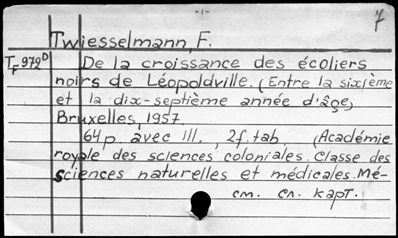 -1-
7
Twiesselmann, F.
T_F 979^D De la croissance des écoliers
noirs de Léopoldville. (Entre la sixième
et la dix-septième année d'âge,
Bruxelles, 1957.
64 p. avec ill., 2 f. tab. (Académie
royale des sciences coloniales. Classe des
sciences naturelles et médicales. Mé-
см. сл. карт.